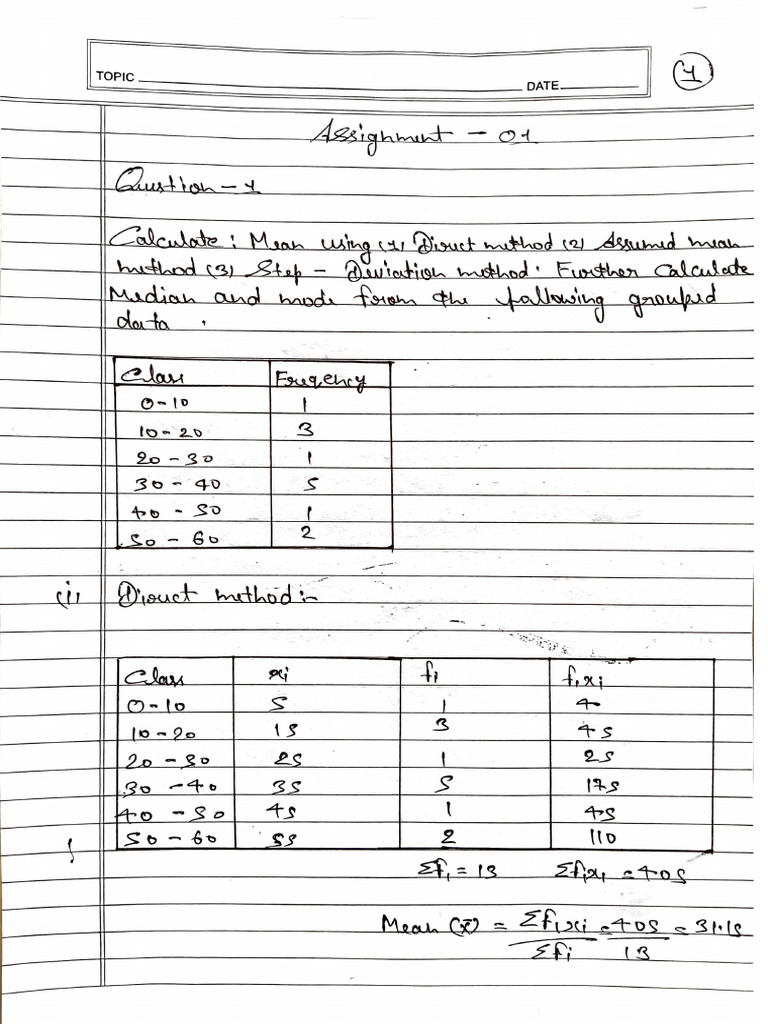 TOPIC
DATE
1
Assignment - 01
Question - 1
Calculate: Mean using (1) Direct method (2) Assumed mean
method (3) Step - Deviation method. Further Calculate
Median and mode from the following grouped
data.
Class Freqency
0-10 1
10-20 3
20-30 1
30-40 5
40-50 1
50-60 2
(i) Direct method:-
Class xi fi fixi
0-10 5 1
10-20 15 3 45
20-30 25 1 25
30-40 35 5 175
40-50 45 1 45
50-60 55 2 110
Σfi = 13 Σfixi = 405
Mean (x̄) = Σfixi = 405 = 31.15
Σfi 13